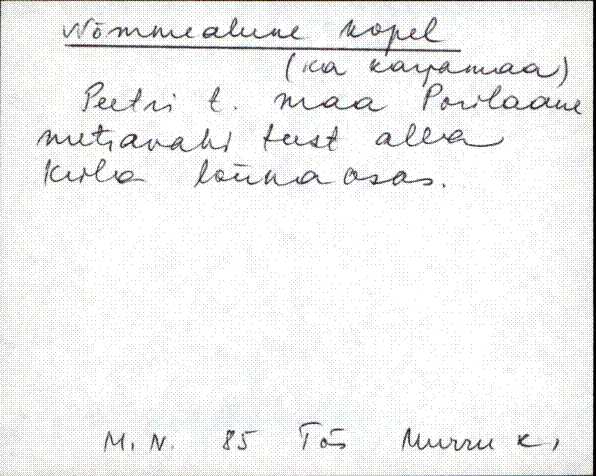 Nõmmealune kopel
(ka karjamaa)
Peetri t. maa Porilaane
metsavahi teest alla
küla lõunaosas.
M. N. 85 Tõs Murru k,